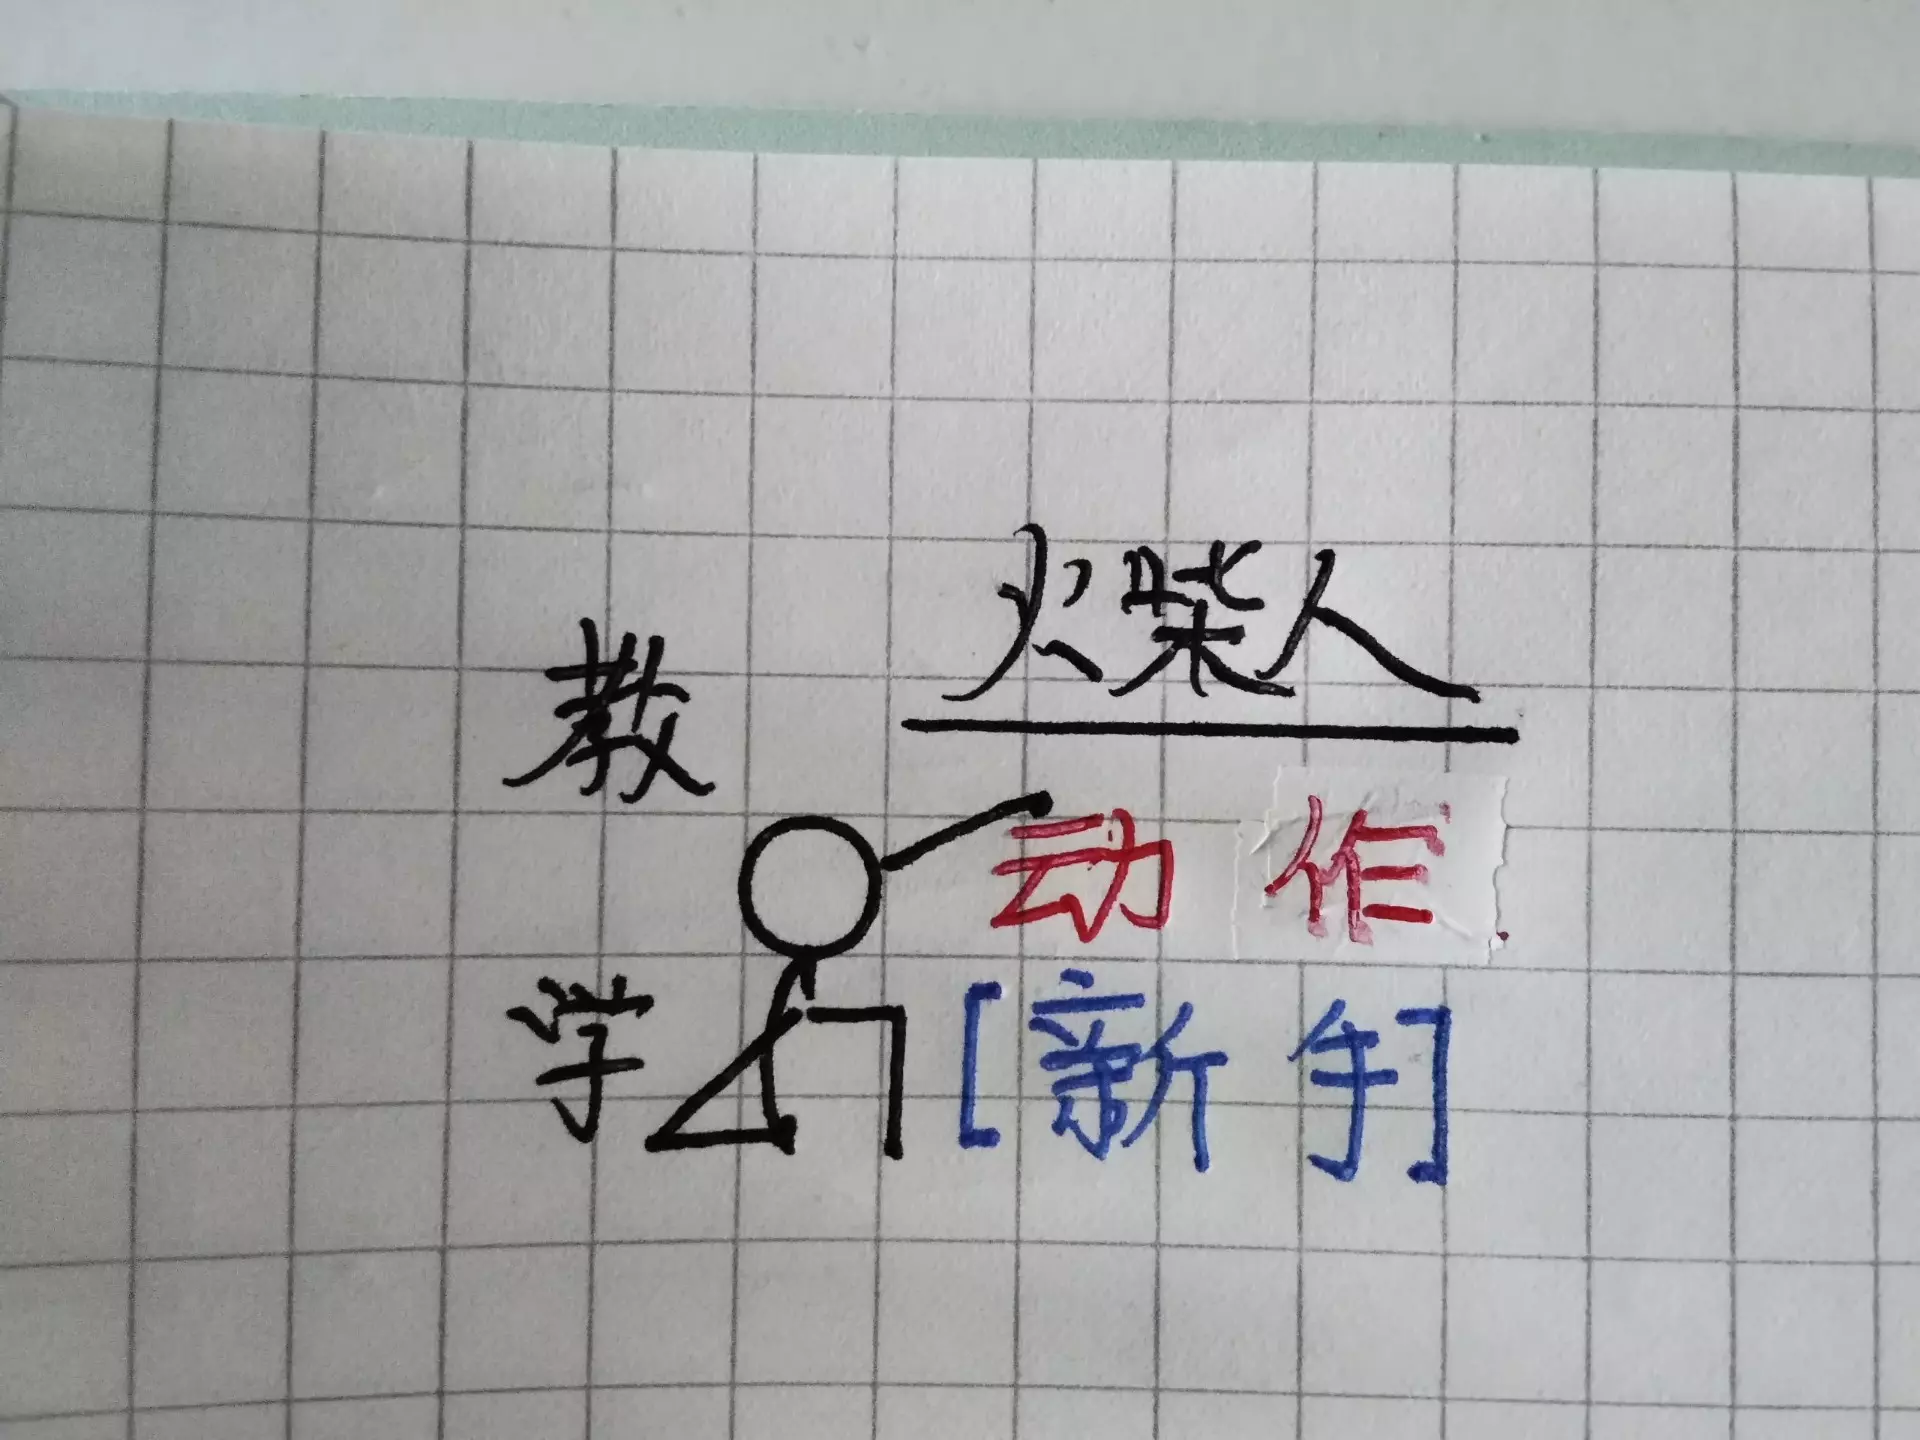 火柴人
教学
动作
[新手]